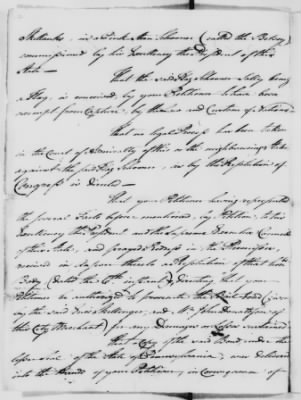 in a
commissioned by his Excellency the President of this
State —
That the said Flag Schooner Betsy being
a Flag, is conceived, by your Petitioner to have been
exempt from Capture, by the Laws and Customs of Nations
that no legal Process has been taken
in the Court of Admiralty of this or the neighbouring State
against the said Flag Schooner, as by the Resolution of
Congress is directed —
That your Petitioner having represented
the several Facts before mentioned, by Petition, to his
Excellency the President and the Supreme Executive Council
of this State, and prayed Redress in the Premises,
received in Answer thereto a Resolution of that hon.
Body (dated the 6th instant) directing that your
Petitioner be authorized to prosecute the Bond (given
by the said and Mr. John Donaldson of
this City Merchant) for any Damages or Losses sustained
that Copy of the said Bond, under the
lesser Seal of the State of Pennsylvania, was delivered
into the Hands of your Petitioner, in Consequence of